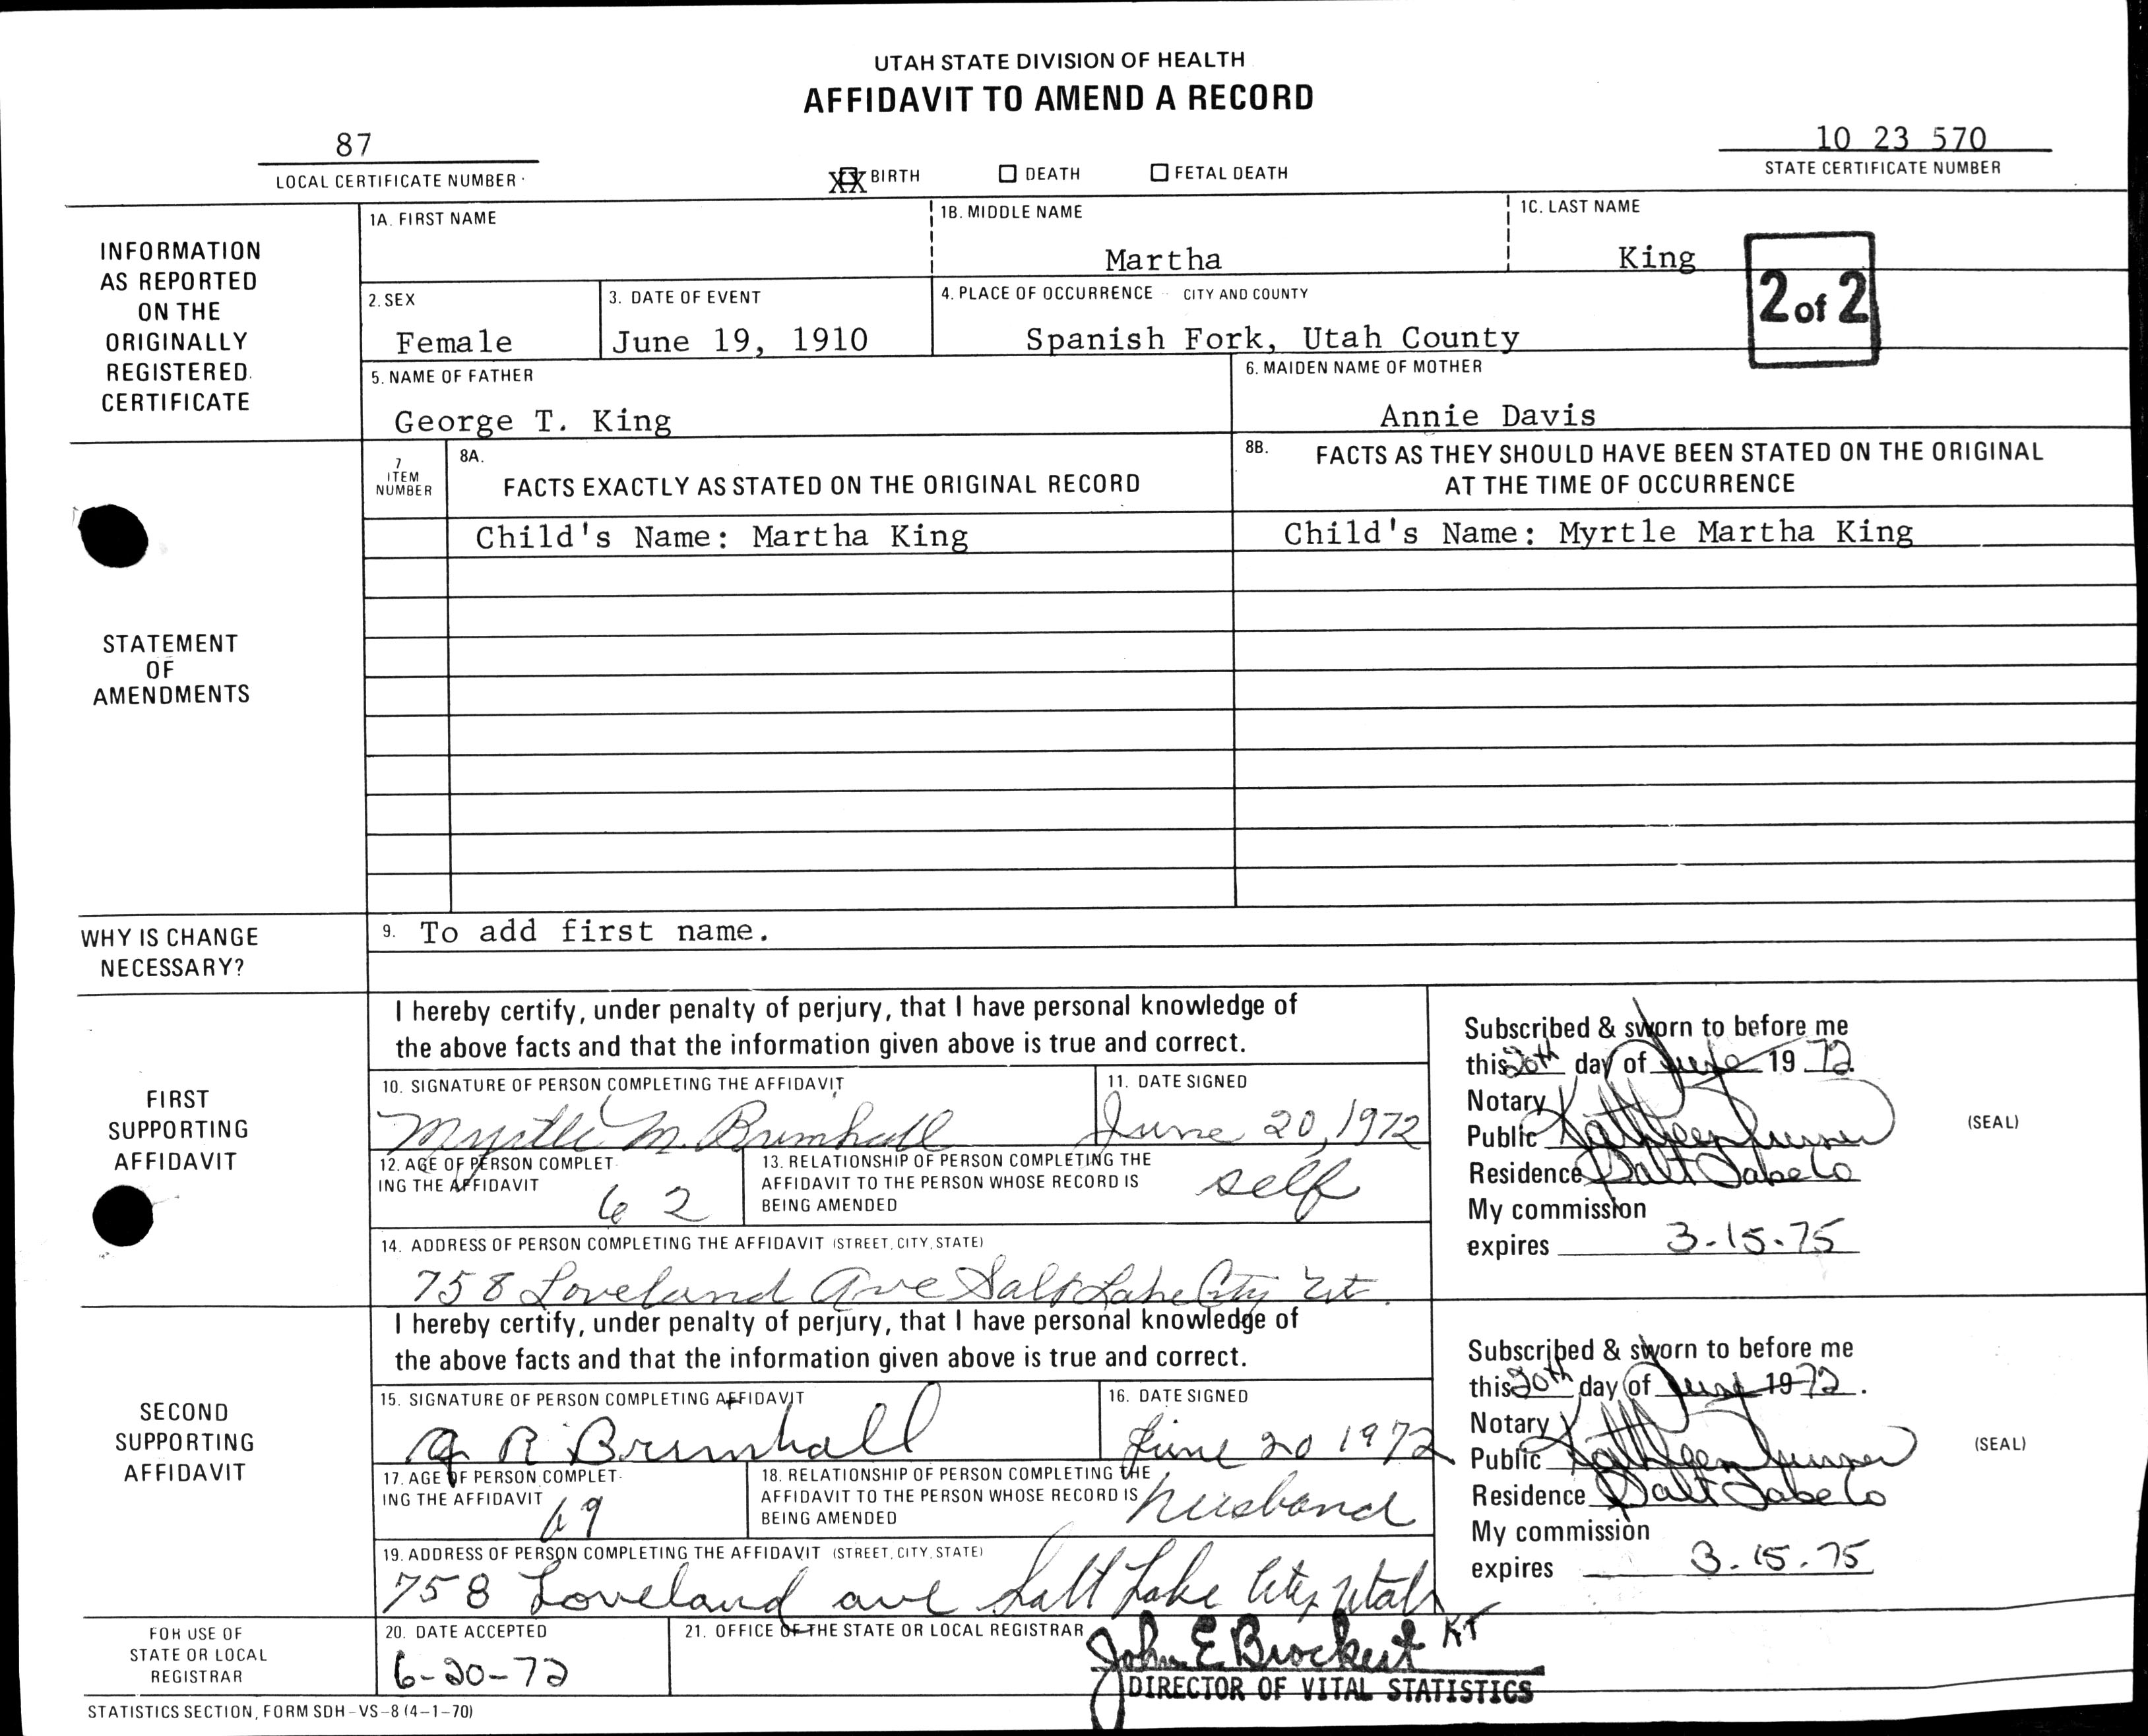 UTAH STATE DIVISION OF HEALTH
AFFIDAVIT TO AMEND A RECORD
87
LOCAL CERTIFICATE NUMBER
XX BIRTH DEATH FETAL DEATH
10 23 570
STATE CERTIFICATE NUMBER
INFORMATION
AS REPORTED
ON THE
ORIGINALLY
REGISTERED
CERTIFICATE
1A. FIRST NAME
1B. MIDDLE NAME
Martha
1C. LAST NAME
King
2 of 2
2. SEX
Female
3. DATE OF EVENT
June 19, 1910
4. PLACE OF OCCURRENCE -- CITY AND COUNTY
Spanish Fork, Utah County
5. NAME OF FATHER
George T. King
6. MAIDEN NAME OF MOTHER
Annie Davis
STATEMENT
OF
AMENDMENTS
7
ITEM
NUMBER
8A.
FACTS EXACTLY AS STATED ON THE ORIGINAL RECORD
8B. FACTS AS THEY SHOULD HAVE BEEN STATED ON THE ORIGINAL
AT THE TIME OF OCCURRENCE
Child's Name: Martha King
Child's Name: Myrtle Martha King
WHY IS CHANGE
NECESSARY?
9. To add first name.
FIRST
SUPPORTING
AFFIDAVIT
I hereby certify, under penalty of perjury, that I have personal knowledge of
the above facts and that the information given above is true and correct.
10. SIGNATURE OF PERSON COMPLETING THE AFFIDAVIT
Myrtle M. Brimhall
11. DATE SIGNED
June 20, 1972
12. AGE OF PERSON COMPLET-
ING THE AFFIDAVIT
62
13. RELATIONSHIP OF PERSON COMPLETING THE
AFFIDAVIT TO THE PERSON WHOSE RECORD IS
BEING AMENDED
self
14. ADDRESS OF PERSON COMPLETING THE AFFIDAVIT (STREET, CITY, STATE)
758 Loveland Ave Salt Lake City Ut.
Subscribed & sworn to before me
this 20th day of June 19 72.
Notary
Public Kathleen
Residence Salt Lake Co
My commission
expires 3-15-75
(SEAL)
SECOND
SUPPORTING
AFFIDAVIT
I hereby certify, under penalty of perjury, that I have personal knowledge of
the above facts and that the information given above is true and correct.
15. SIGNATURE OF PERSON COMPLETING AFFIDAVIT
R Brimhall
16. DATE SIGNED
June 20 1972
17. AGE OF PERSON COMPLET-
ING THE AFFIDAVIT
69
18. RELATIONSHIP OF PERSON COMPLETING THE
AFFIDAVIT TO THE PERSON WHOSE RECORD IS
BEING AMENDED
husband
19. ADDRESS OF PERSON COMPLETING THE AFFIDAVIT (STREET, CITY, STATE)
758 Loveland ave Salt Lake City Utah
Subscribed & sworn to before me
this 20th day of June 1972.
Notary
Public Kathleen
Residence Salt Lake Co
My commission
expires 3.15.75
(SEAL)
FOR USE OF
STATE OR LOCAL
REGISTRAR
20. DATE ACCEPTED
6-20-72
21. OFFICE OF THE STATE OR LOCAL REGISTRAR
John E Brockert KT
DIRECTOR OF VITAL STATISTICS
STATISTICS SECTION, FORM SDH-VS-8 (4-1-70)